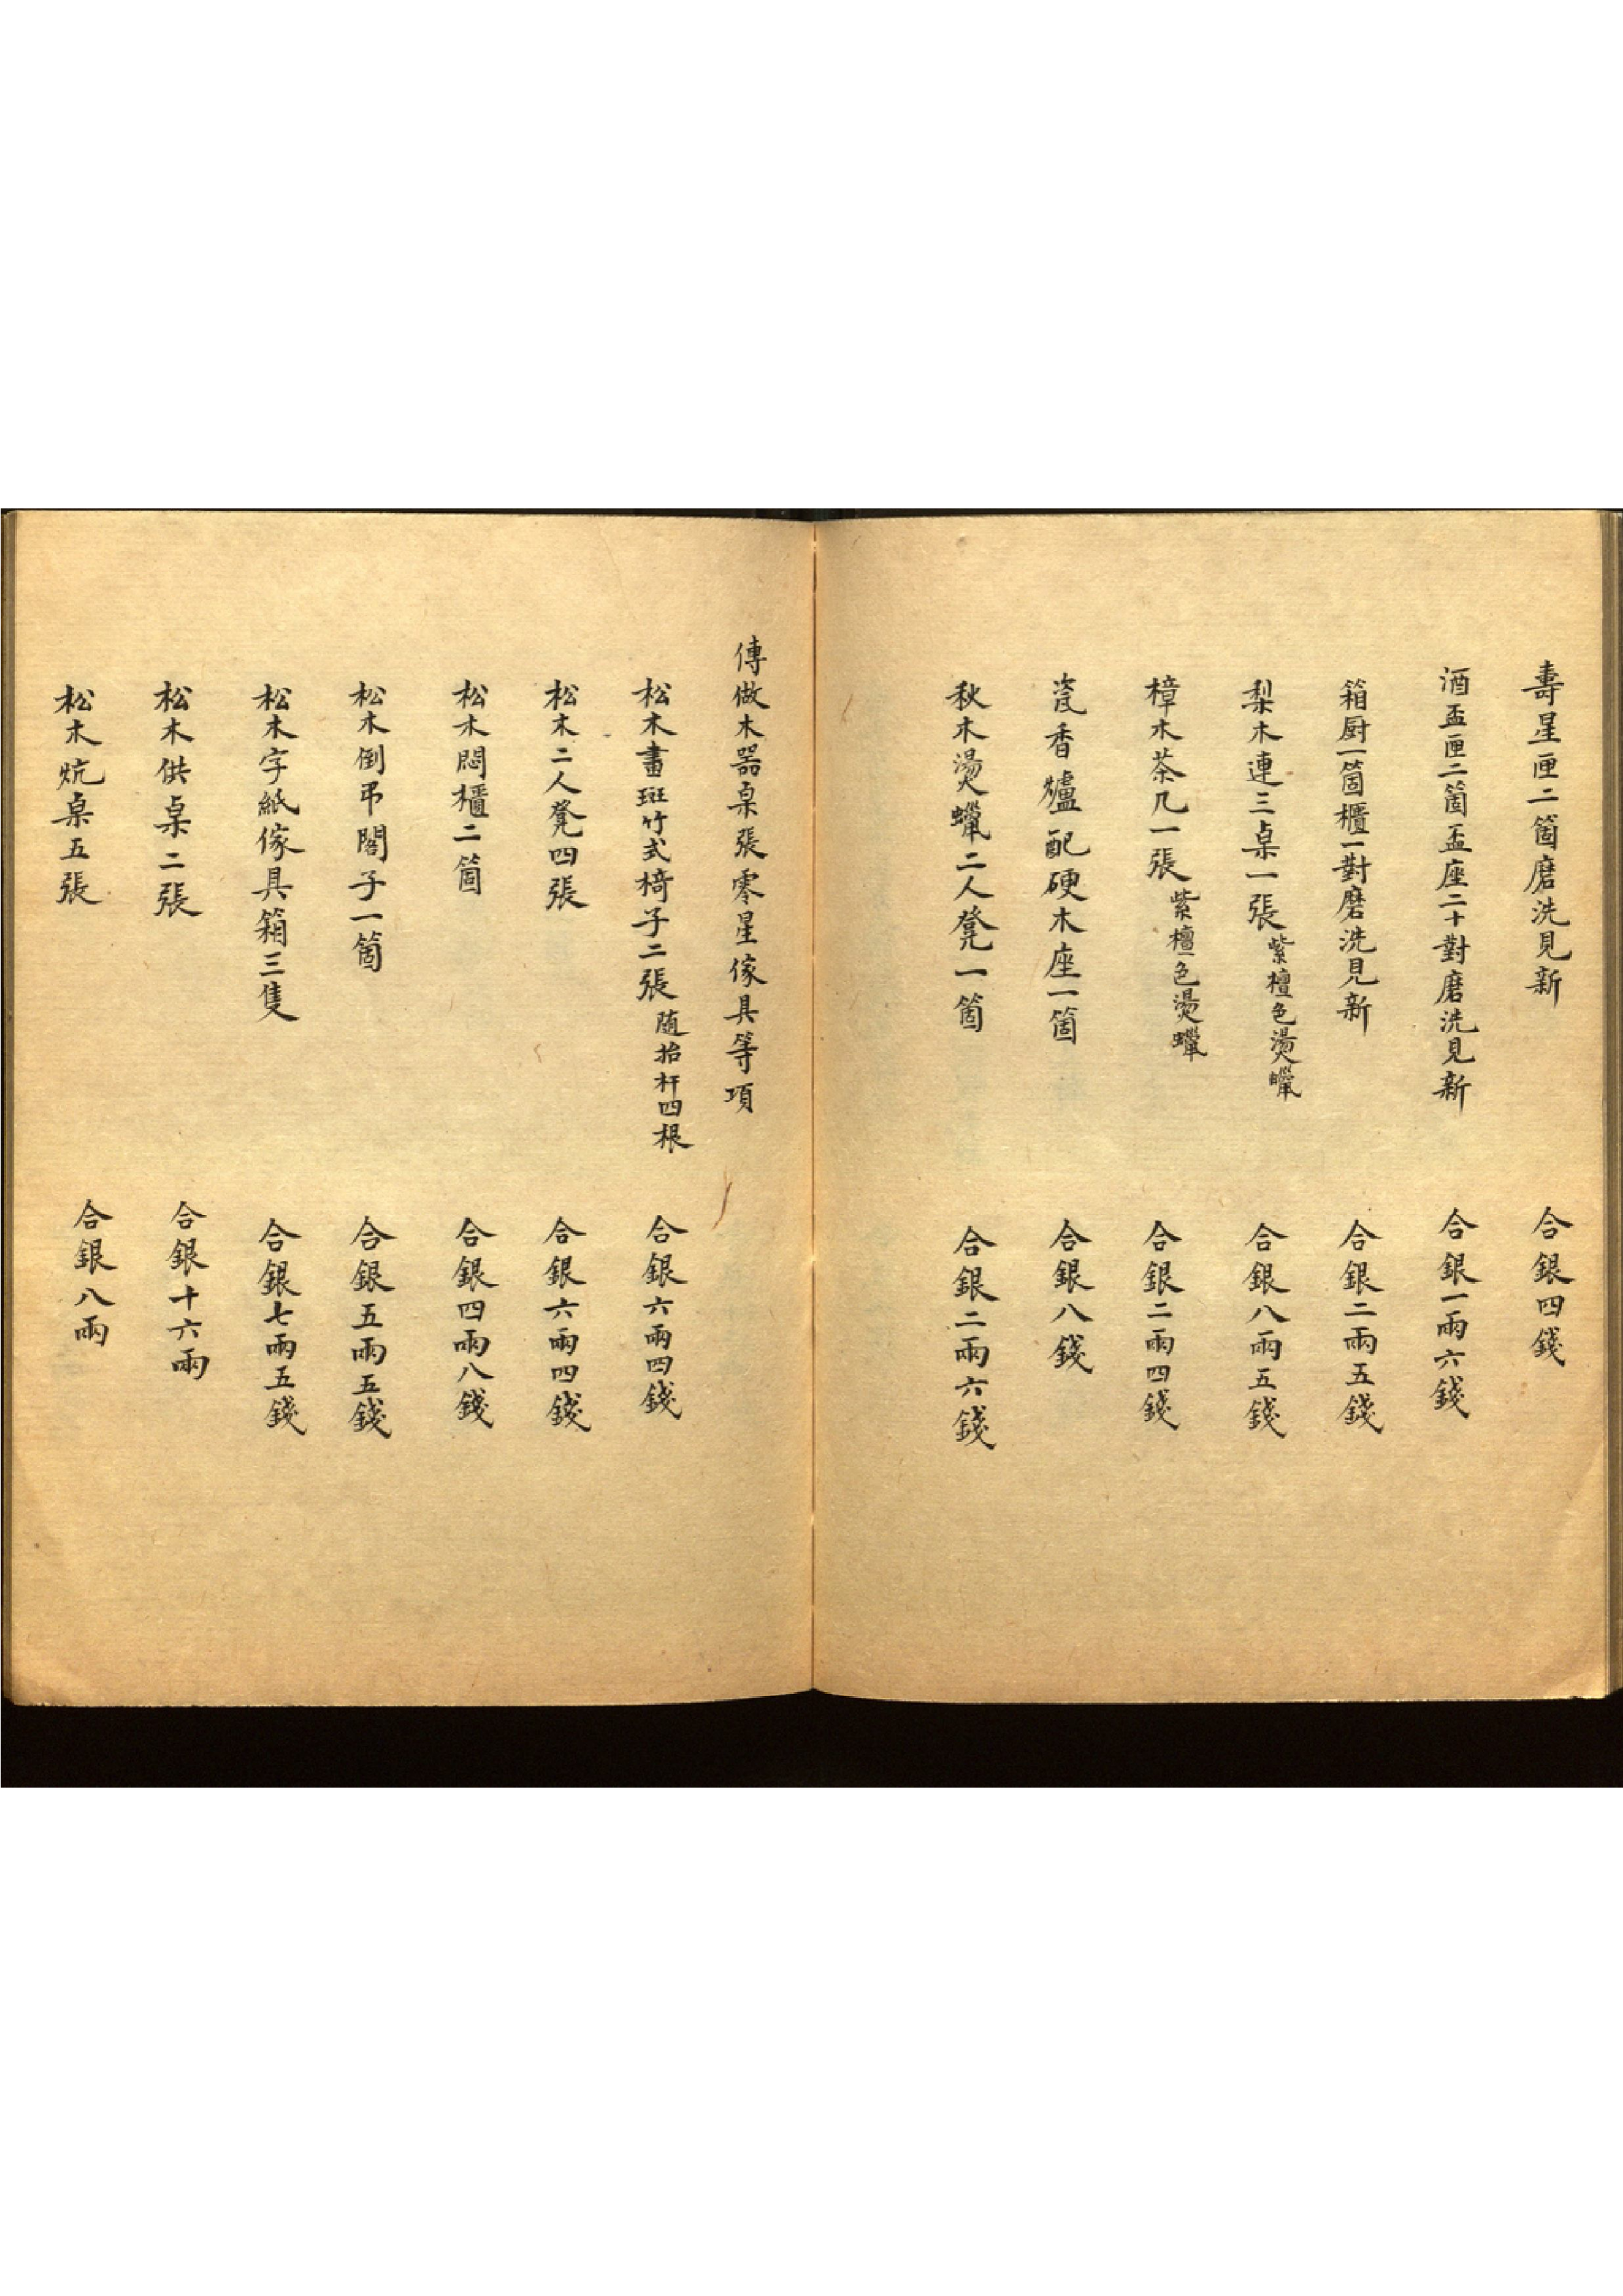 壽星匣二箇磨洗見新 合銀四錢
酒盃匣二箇盃座二十對磨洗見新 合銀一兩六錢
箱厨一箇櫃一對磨洗見新 合銀二兩五錢
梨木連三桌一張紫檀色燙蠟 合銀八兩五錢
樟木茶几一張紫檀色燙蠟 合銀二兩四錢
瓷香爐配硬木座一箇 合銀八錢
秋木燙蠟二人凳一箇 合銀二兩六錢
傳做木器桌張零星傢具等項
松木畫斑竹式椅子二張随抬杆四根 合銀六兩四錢
松木二人凳四張 合銀六兩四錢
松木悶櫃二箇 合銀四兩八錢
松木倒弔閣子一箇 合銀五兩五錢
松木字紙傢具箱三隻 合銀七兩五錢
松木供桌二張 合銀十六兩
松木炕桌五張 合銀八兩